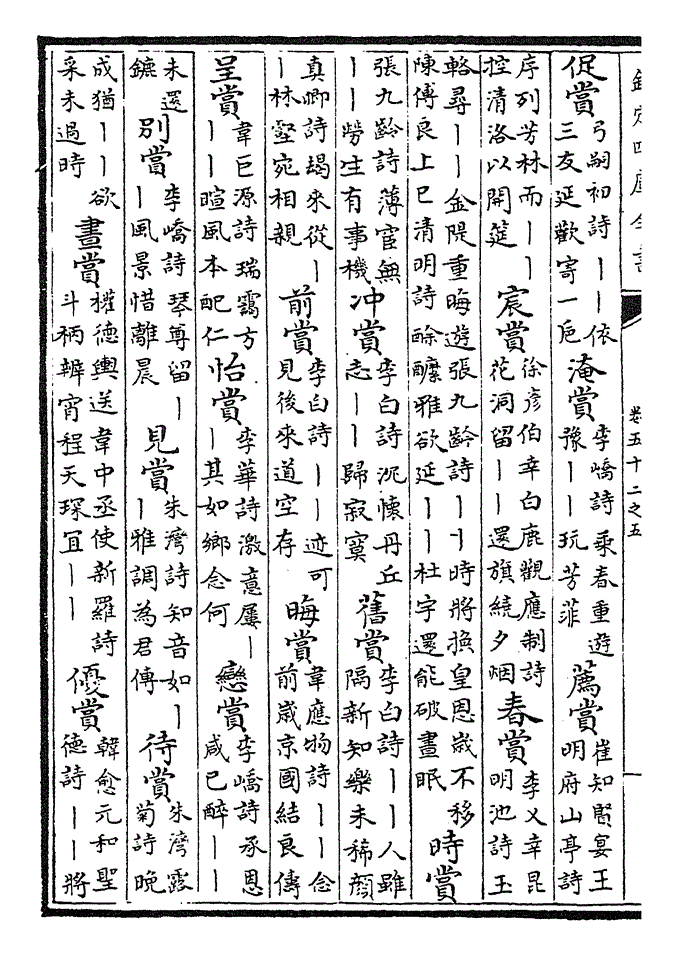 欽定四庫全書
卷五十二之五
促賞弓嗣初詩丨丨依三友延歡寄一巵淹賞李嶠詩乘春重遊豫丨丨玩芳菲薦賞崔知賢宴王明府山亭詩
序列芳林而丨丨控清洛以開筵宸賞徐彦伯幸白鹿觀應制詩花洞留丨丨還旗繞夕烟春賞李乂幸昆明池詩玉
輅尋丨丨金隄重晦遊張九齡詩丨丨時將換皇恩歲不移陳傅良上巳清明詩酴醿雅欲延丨丨杜宇還能破晝眠時賞
張九齡詩薄宦無丨丨勞生有事機冲賞李白詩沉懷丹丘志丨丨歸寂寞舊賞李白詩丨丨人雖隔新知樂未稀顔
真卿詩朅來從丨丨林壑宛相親前賞李白詩丨丨迹可見後來道空存晦賞韋應物詩丨丨念前歲京國結良儔
呈賞韋巨源詩瑞靄方丨丨暄風本配仁怡賞李華詩激意屢丨丨其如鄉念何戀賞李嶠詩承恩咸已醉丨丨
未還鑣別賞李嶠詩琴尊留丨丨風景惜離晨見賞朱灣詩知音如丨丨雅調為君傳待賞朱灣露菊詩晚
成猶丨丨欲采未過時晝賞權德輿送韋中丞使新羅詩斗柄辨宵程天琛宜丨丨優賞韓愈元和聖德詩丨丨將